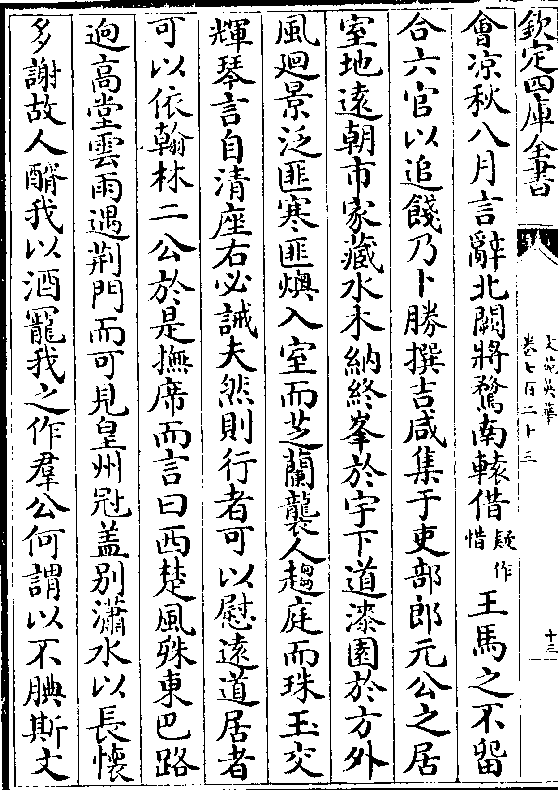 欽定四庫全書
文苑英華
卷七百二十三
十三
會凉秋八月言辭北闕將騖南轅借疑作惜王馬之不留
合六官以追餞乃卜勝撰吉咸集于吏部郎元公之居
室地遠朝市家藏水木納終峯於宇下道漆園於方外
風迴景泛匪寒匪燠入室而芝蘭襲人趨庭而珠玉交
輝琴言自清座右必誡夫然則行者可以慰遠道居者
可以依翰林二公於是撫席而言曰西楚風殊東巴路
逈高堂雲雨遇荆門而可見皇州冠盖别瀟水以長懷
多謝故人酳我以酒寵我之作羣公何謂以不腆斯文